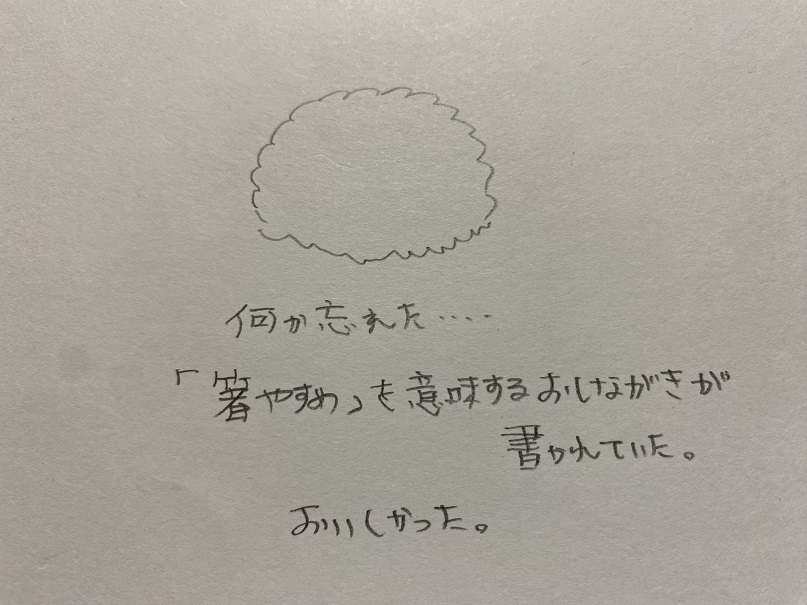 何か忘れた‥‥
「箸やすめ」を意味するおしながきが
書かれていた。
おいしかった。